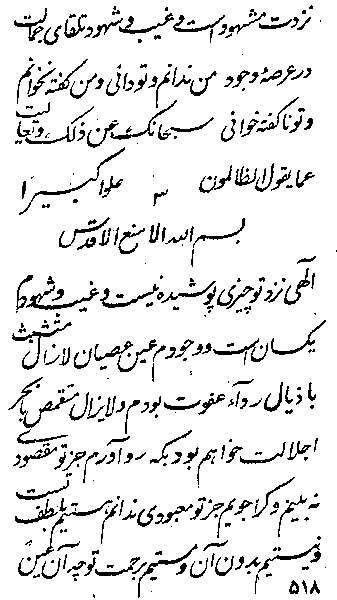 نزدت مشهود است و غیب و شهود تلقای جمالت
در عرصهٔ وجود من ندانم و تو دانی و من گفته نخوانم
و تو ناگفته خوانی سبحانک عن ذلک و تعالیت
عما یقول الظالمون علوا کبیرا
بسم الله الامنع الاقدس
الهی نزد تو چیزی پوشیده نیست و غیب و شهودم
یکسان است و وجودم عین عصیان لازال متشبث
باذیال رداء عفوت بودم ولایزال متغمص بحر
اجلالت خواهم بود بکه رو آورم جز تو مقصودی
نه بینم و کرا جویم جز تو معبودی ندانم هستیم بلطف تست
و نیستیم بدون آن و مستیم برحمت توجه آن عین
۵۱۸